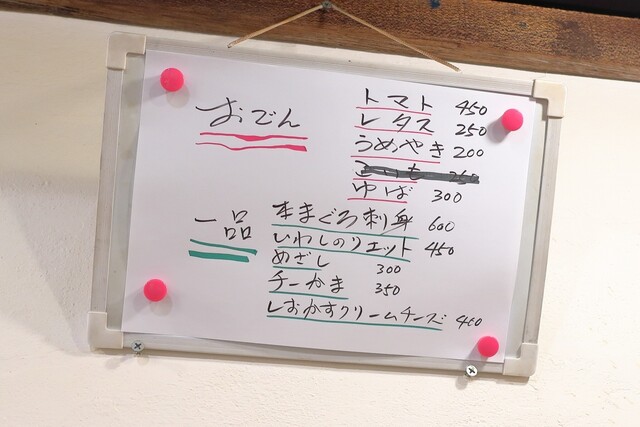 おでん
トマト 450
レタス 250
うめやき 200
ゆば 300
一品
本まぐろ刺身 600
いわしのリエット 450
めざし 300
チーかま 350
しおかすクリームチーズ 400